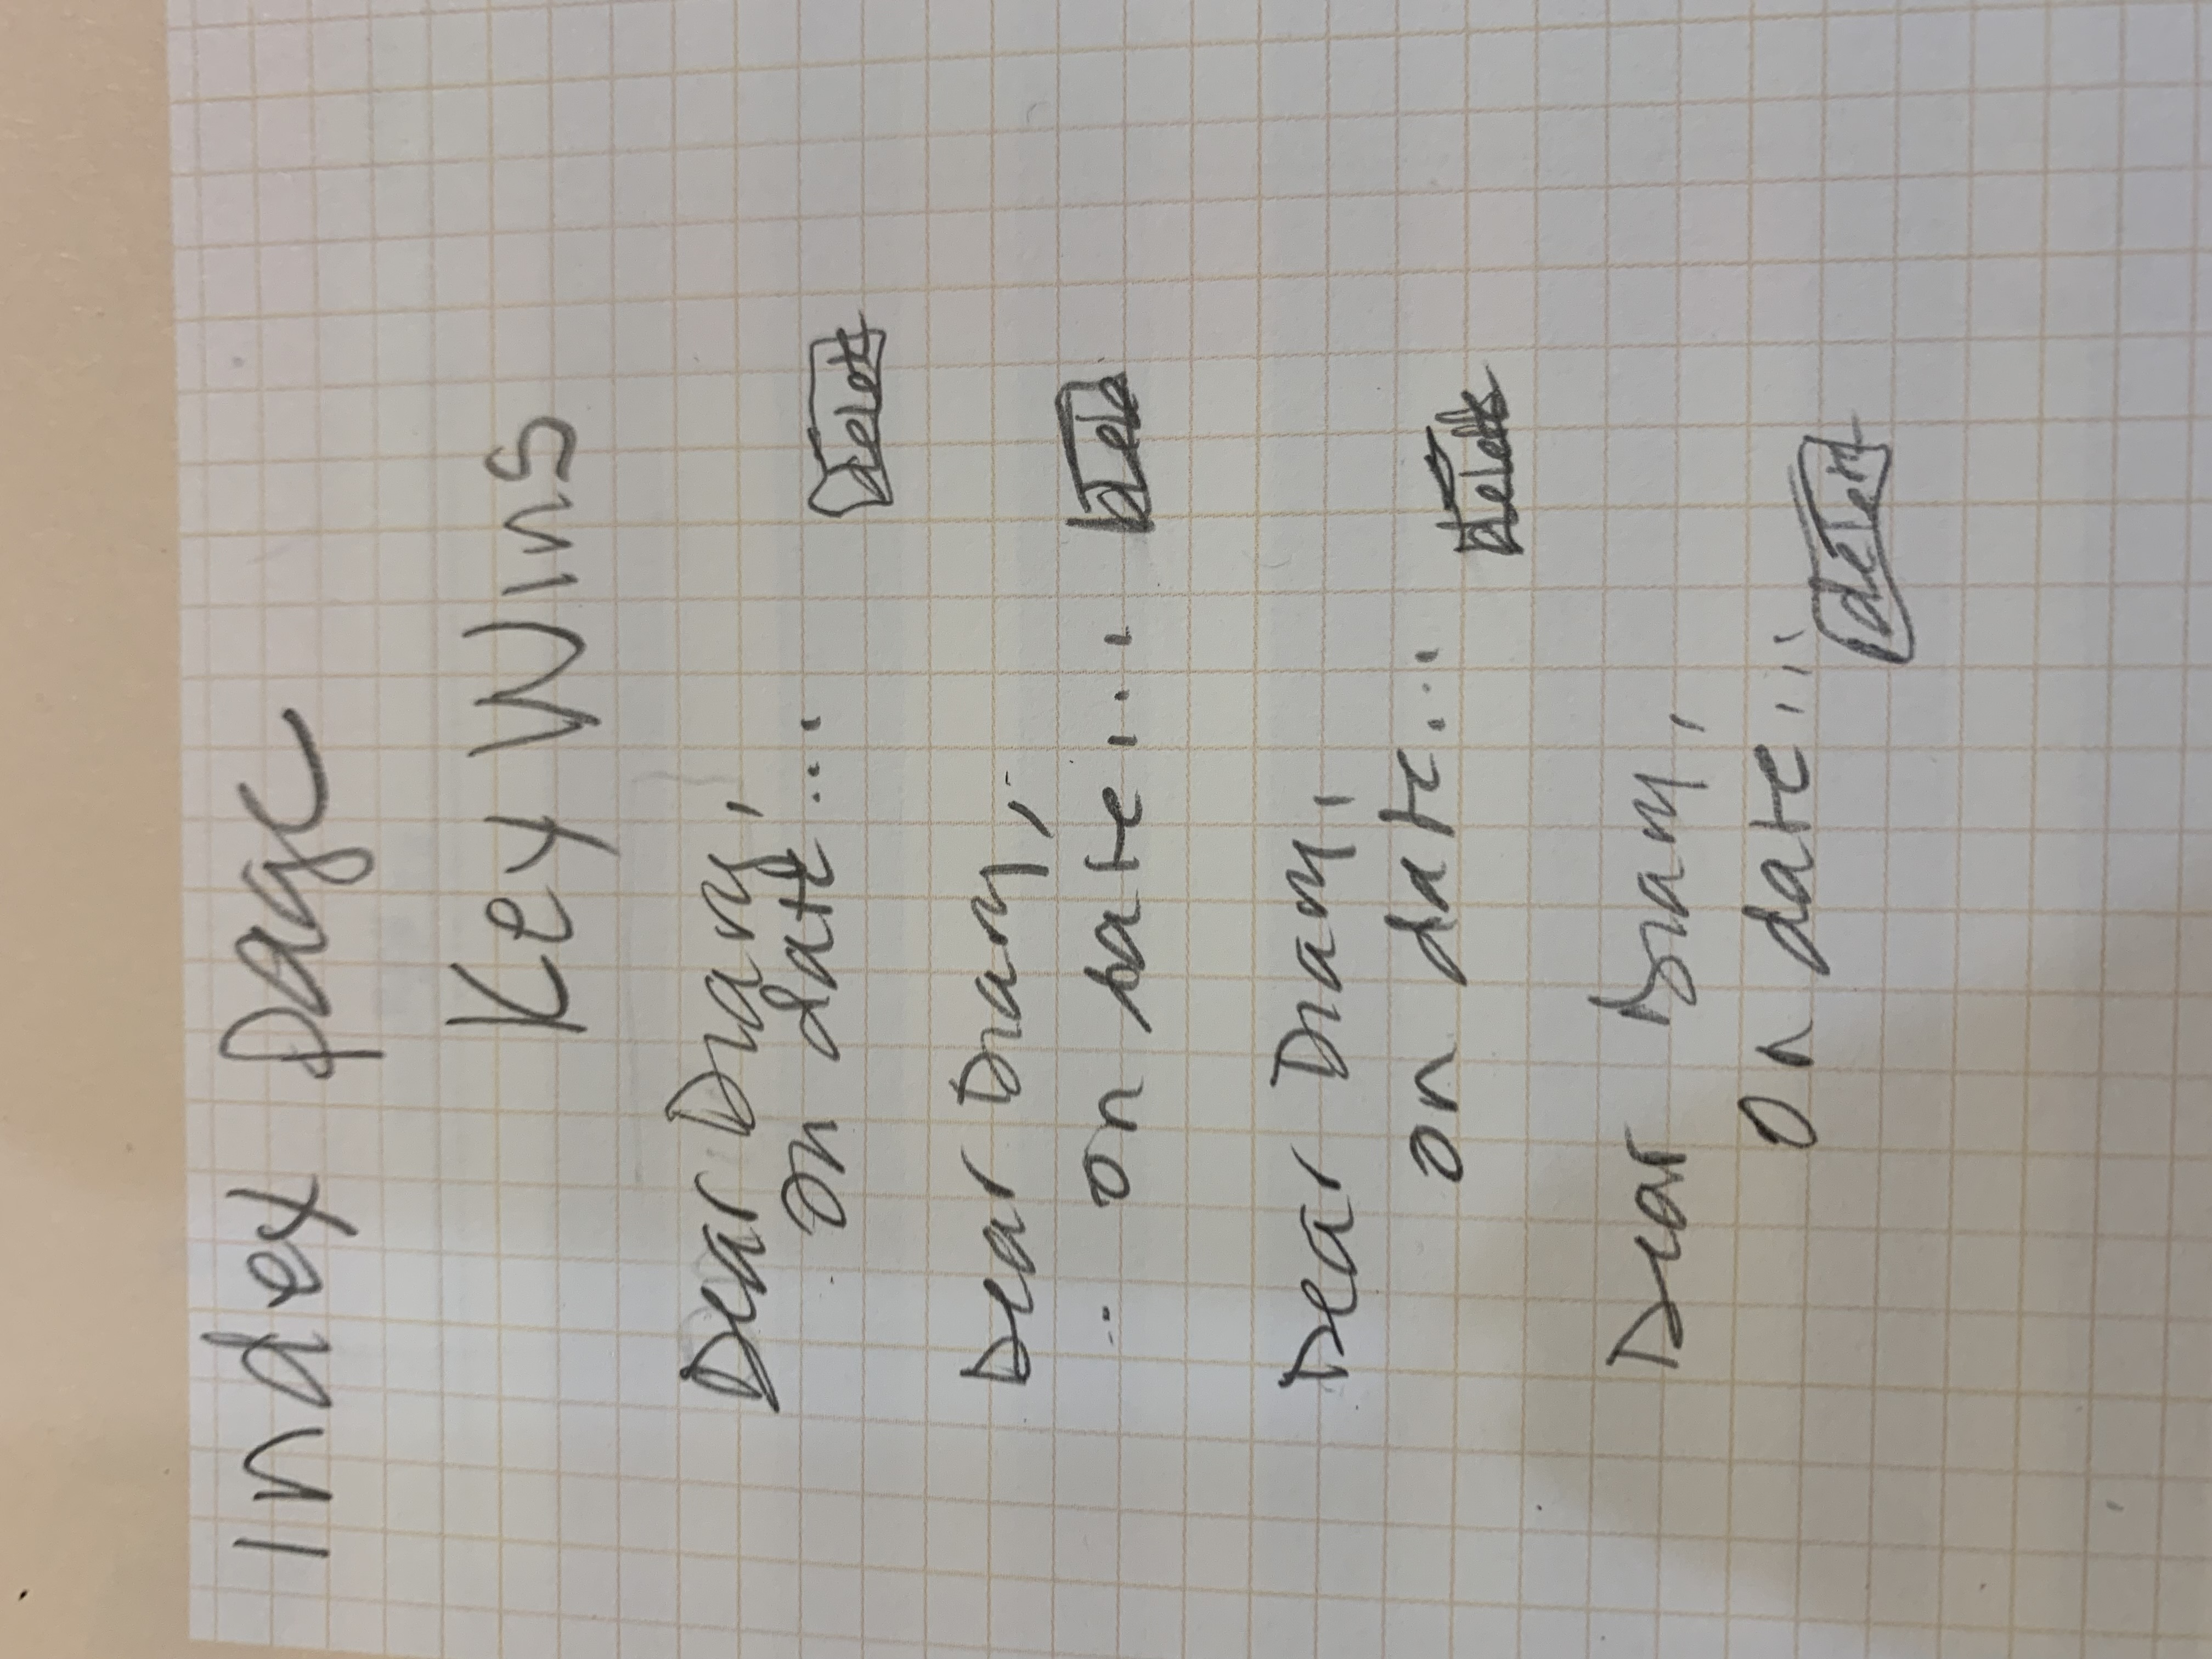 Index page
Key Wins
Dear Diary,
on date...
delete
Dear Diary,
on date...
Dear Diary,
on date...
delete
Dear Diary,
on date...
delete